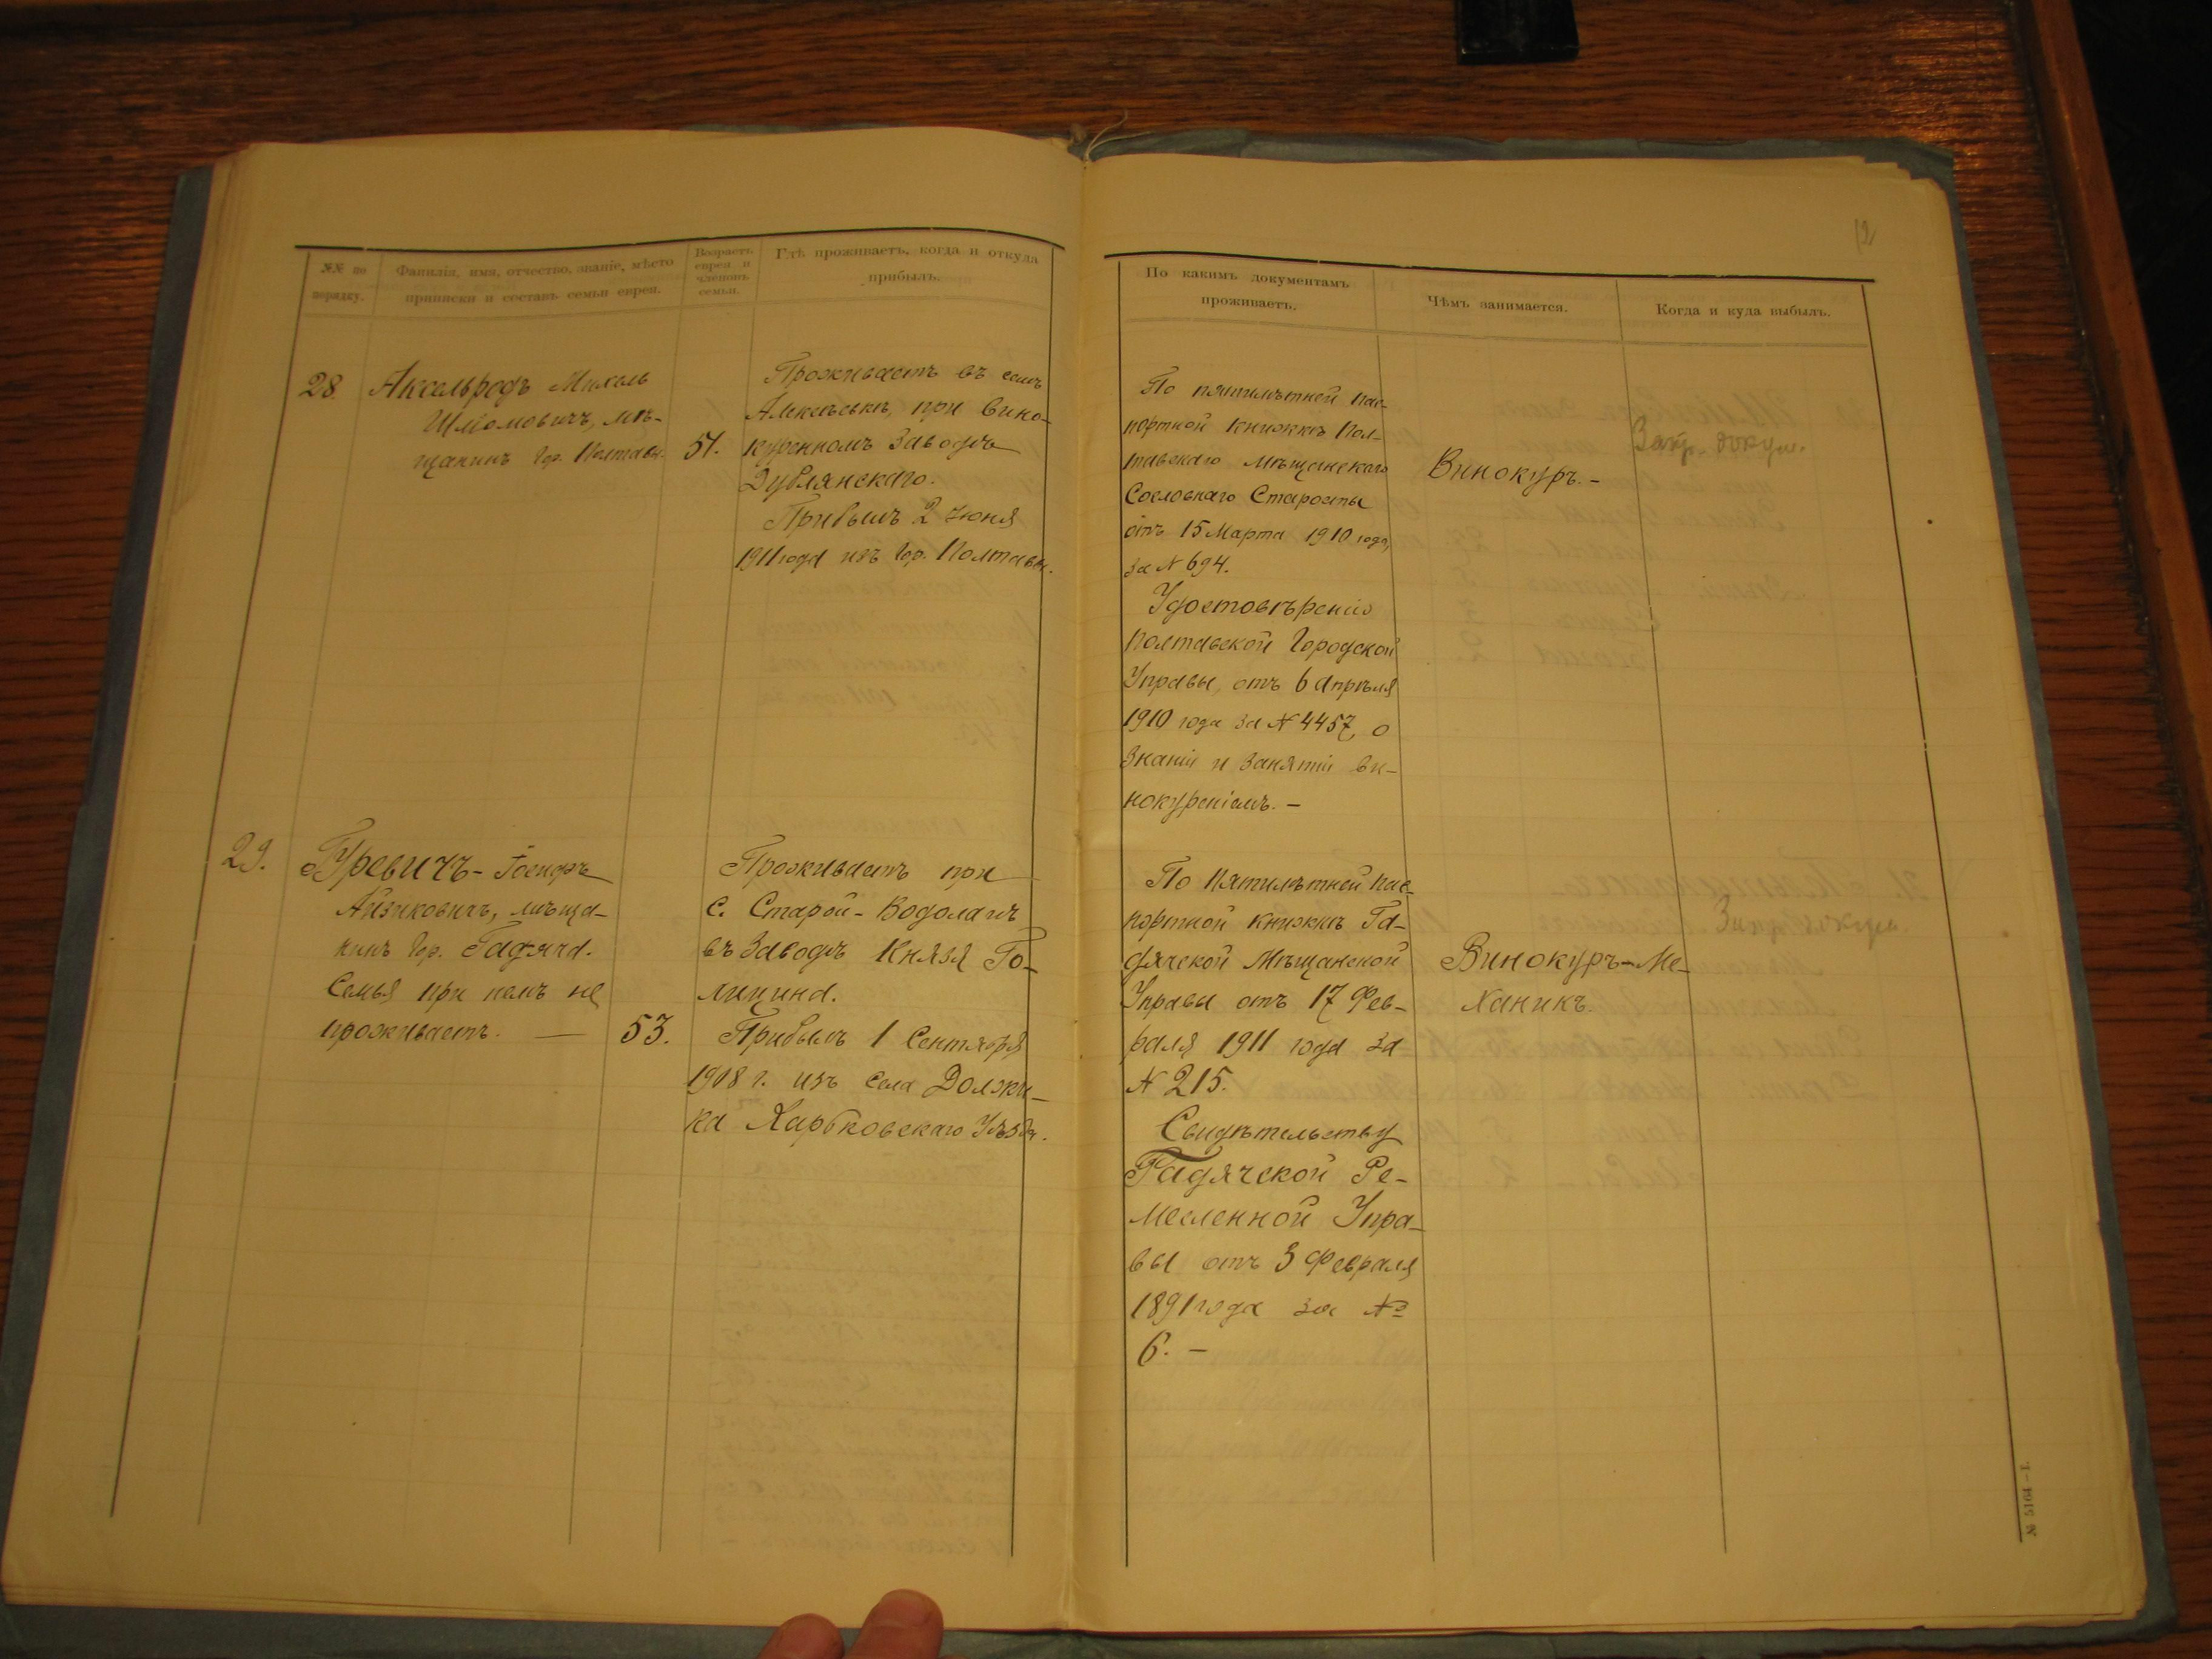 12
№№ по порядку.
Фамилія, имя, отчество, званіе, мѣсто
приписки и составъ семьи еврея.
Возрастъ
еврея и
членовъ
семьи.
Гдѣ проживаетъ, когда и откуда
прибылъ.
По какимъ документамъ
проживаетъ.
Чѣмъ занимается.
Когда и куда выбылъ.
28.
Аксельродъ Михель
Шліомовичъ, мѣ-
щанинъ гор. Полтавы.
51.
Проживаетъ въ селѣ
Алексѣевкѣ, при вино-
куренномъ заводѣ
Дублянскаго.
Прибылъ 2 Іюня
1911 года изъ гор. Полтавы.
По пятилѣтней пас-
портной книжкѣ Пол-
тавскаго мѣщанскаго
Сословнаго Старосты
отъ 15 Марта 1910 года,
за № 694.
Удостовѣренію
Полтавской Городской
Управы, отъ 6 Апрѣля
1910 года за № 4457, о
знаніи и занятіи ви-
нокуреніемъ. –
Винокуръ. –
докум.
29.
Гуревичъ - Іосифъ
Айзиковичъ, мѣща-
нинъ гор. Гадяча.
Семья при немъ не
проживаетъ. —
53.
Проживаетъ при
с. Старой - Водолагѣ
въ заводѣ Князя Го-
лицина.
Прибылъ 1 Сентября
1908 г. изъ села Должи-
ка Харьковскаго Уѣзда.
По пятилѣтней пас-
портной книжкѣ Га-
дячской Мѣщанской
Управы отъ 17 Фев-
раля 1911 года за
№ 215.
Свидѣтельству
Гадячской Ре-
месленной Упра-
вы отъ 3 Февраля
1891 года за №
6. –
Винокуръ-Ме-
ханикъ.
№ 5164 – I.